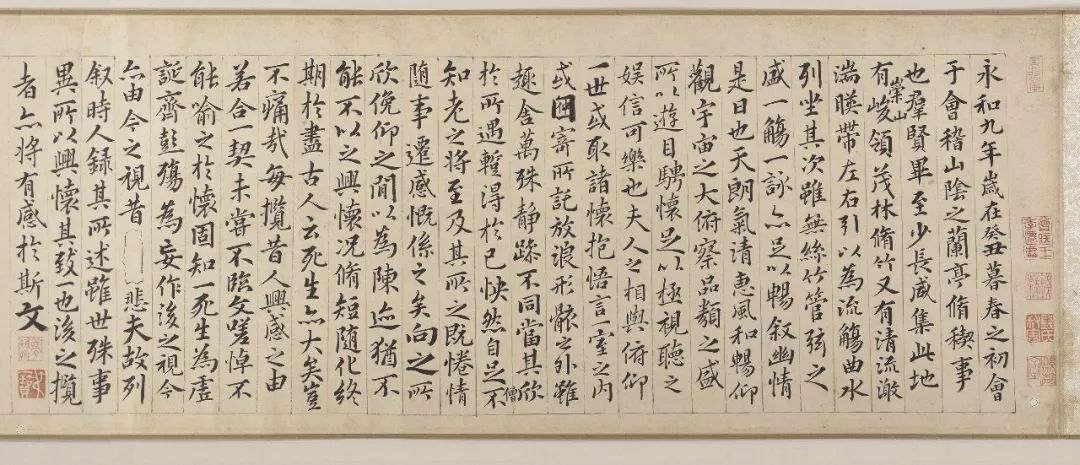 永和九年歲在癸丑暮春之初會
于會稽山陰之蘭亭脩稧事
也羣賢畢至少長咸集此地
有崇山峻領茂林脩竹又有清流激
湍暎帶左右引以為流觴曲水
列坐其次雖無絲竹管弦之
盛一觴一詠亦足以暢叙幽情
是日也天朗氣清惠風和暢仰
觀宇宙之大俯察品類之盛
所以遊目騁懷足以極視聽之
娛信可樂也夫人之相與俯仰
一世或取諸懷抱悟言一室之内
或因寄所託放浪形骸之外雖
趣舍萬殊静躁不同當其欣
於所遇蹔得於己怏然自足不
僧
知老之將至及其所之既惓情
随事遷感慨係之矣向之所
欣俛仰之閒以為陳迹猶不
能不以之興懷况脩短随化終
期於盡古人云死生亦大矣豈
不痛哉每攬昔人興感之由
若合一契未甞不臨文嗟悼不
能喻之於懷固知一死生為虛
誕齊彭殤為妄作後之視今
亦由今之視昔悲夫故列
叙時人錄其所述雖世殊事
異所以興懷其致一也後之攬
者亦將有感於斯文